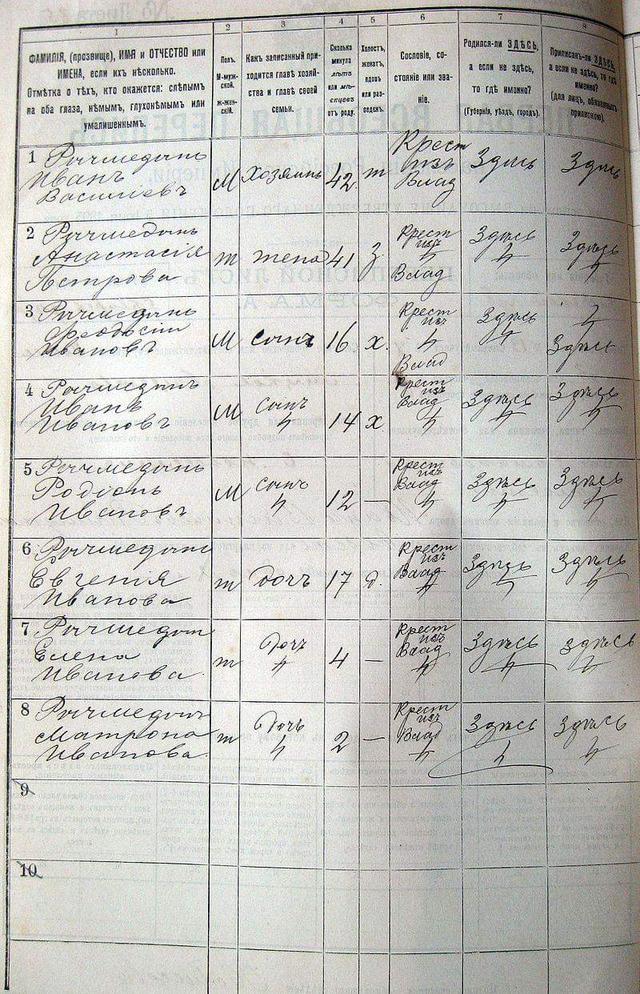 1 2 3 4 5 6 7 8
ФАМИЛІЯ, (прозвище), ИМЯ и ОТЧЕСТВО или
ИМЕНА, если ихъ нѣсколько.
Отмѣтка о тѣхъ, кто окажется: слѣпымъ
на оба глаза, нѣмымъ, глухонѣмымъ или
умалишеннымъ.
Полъ.
М-мужской.
ж-женскій.
Какъ записанный при-
ходится главѣ хозяй-
ства и главѣ своей
семьи.
Сколько
минуло
лѣтъ
или мѣ-
сяцевъ
отъ роду.
Холостъ,
женатъ,
вдовъ
или раз-
веденъ.
Сословіе, со-
стояніе или зва-
ніе.
Родился-ли ЗДѢСЬ,
а если не здѣсь,
то гдѣ именно?
(Губернія, уѣздъ, городъ).
Приписанъ-ли ЗДѢСЬ,
а если не здѣсь, то гдѣ
именно?
(для лицъ, обязанныхъ
припискою).
1
Иванъ
Васильевъ
М Хозяинъ 42 ж
Крест
изъ
Влад
Здѣсь Здѣсь
2
Анастасія
Петрова
ж жена 41 з
Крест
изъ
Влад
Здѣсь Здѣсь
3
Феодосій
Ивановъ
М сынъ 16 х.
Крест
изъ
Влад
Здѣсь Здѣсь
4
Иванъ
Ивановъ
М Сынъ 14 х
Крест
изъ
Влад
Здѣсь Здѣсь
5
Родіонъ
Ивановъ
М Сынъ 12 —
Крест
изъ
Влад
Здѣсь Здѣсь
6
Евгенія
Иванова
ж Дочь 17 д.
Крест
изъ
Влад
Здѣсь Здѣсь
7
Елена
Иванова
ж Дочь 4 —
Крест
изъ
Влад
Здѣсь Здѣсь
8
Матрона
Иванова
ж Дочь 2 —
Крест
изъ
Влад
Здѣсь Здѣсь
9
10